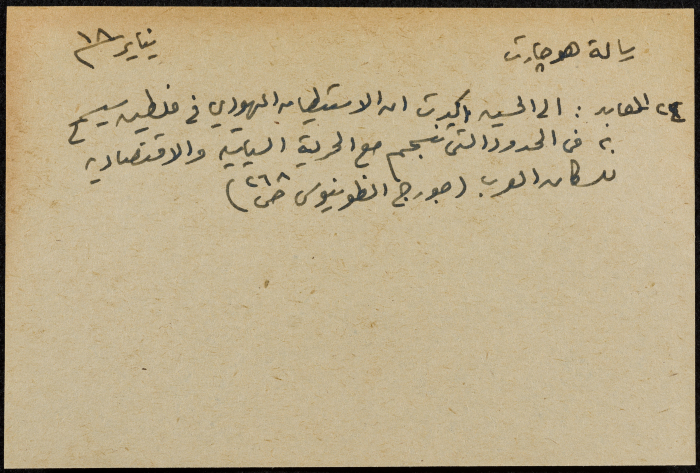 رسالة هوجارت
يناير ١٨
المعاهد : الى الحسين اكدت ان الاستيطان اليهودي في فلسطين سيسمح
به في الحدود التي تنسجم مع الحرية السياسية والاقتصادية
للسكان العرب (جورج انطونيوس ص ٢٦٨)